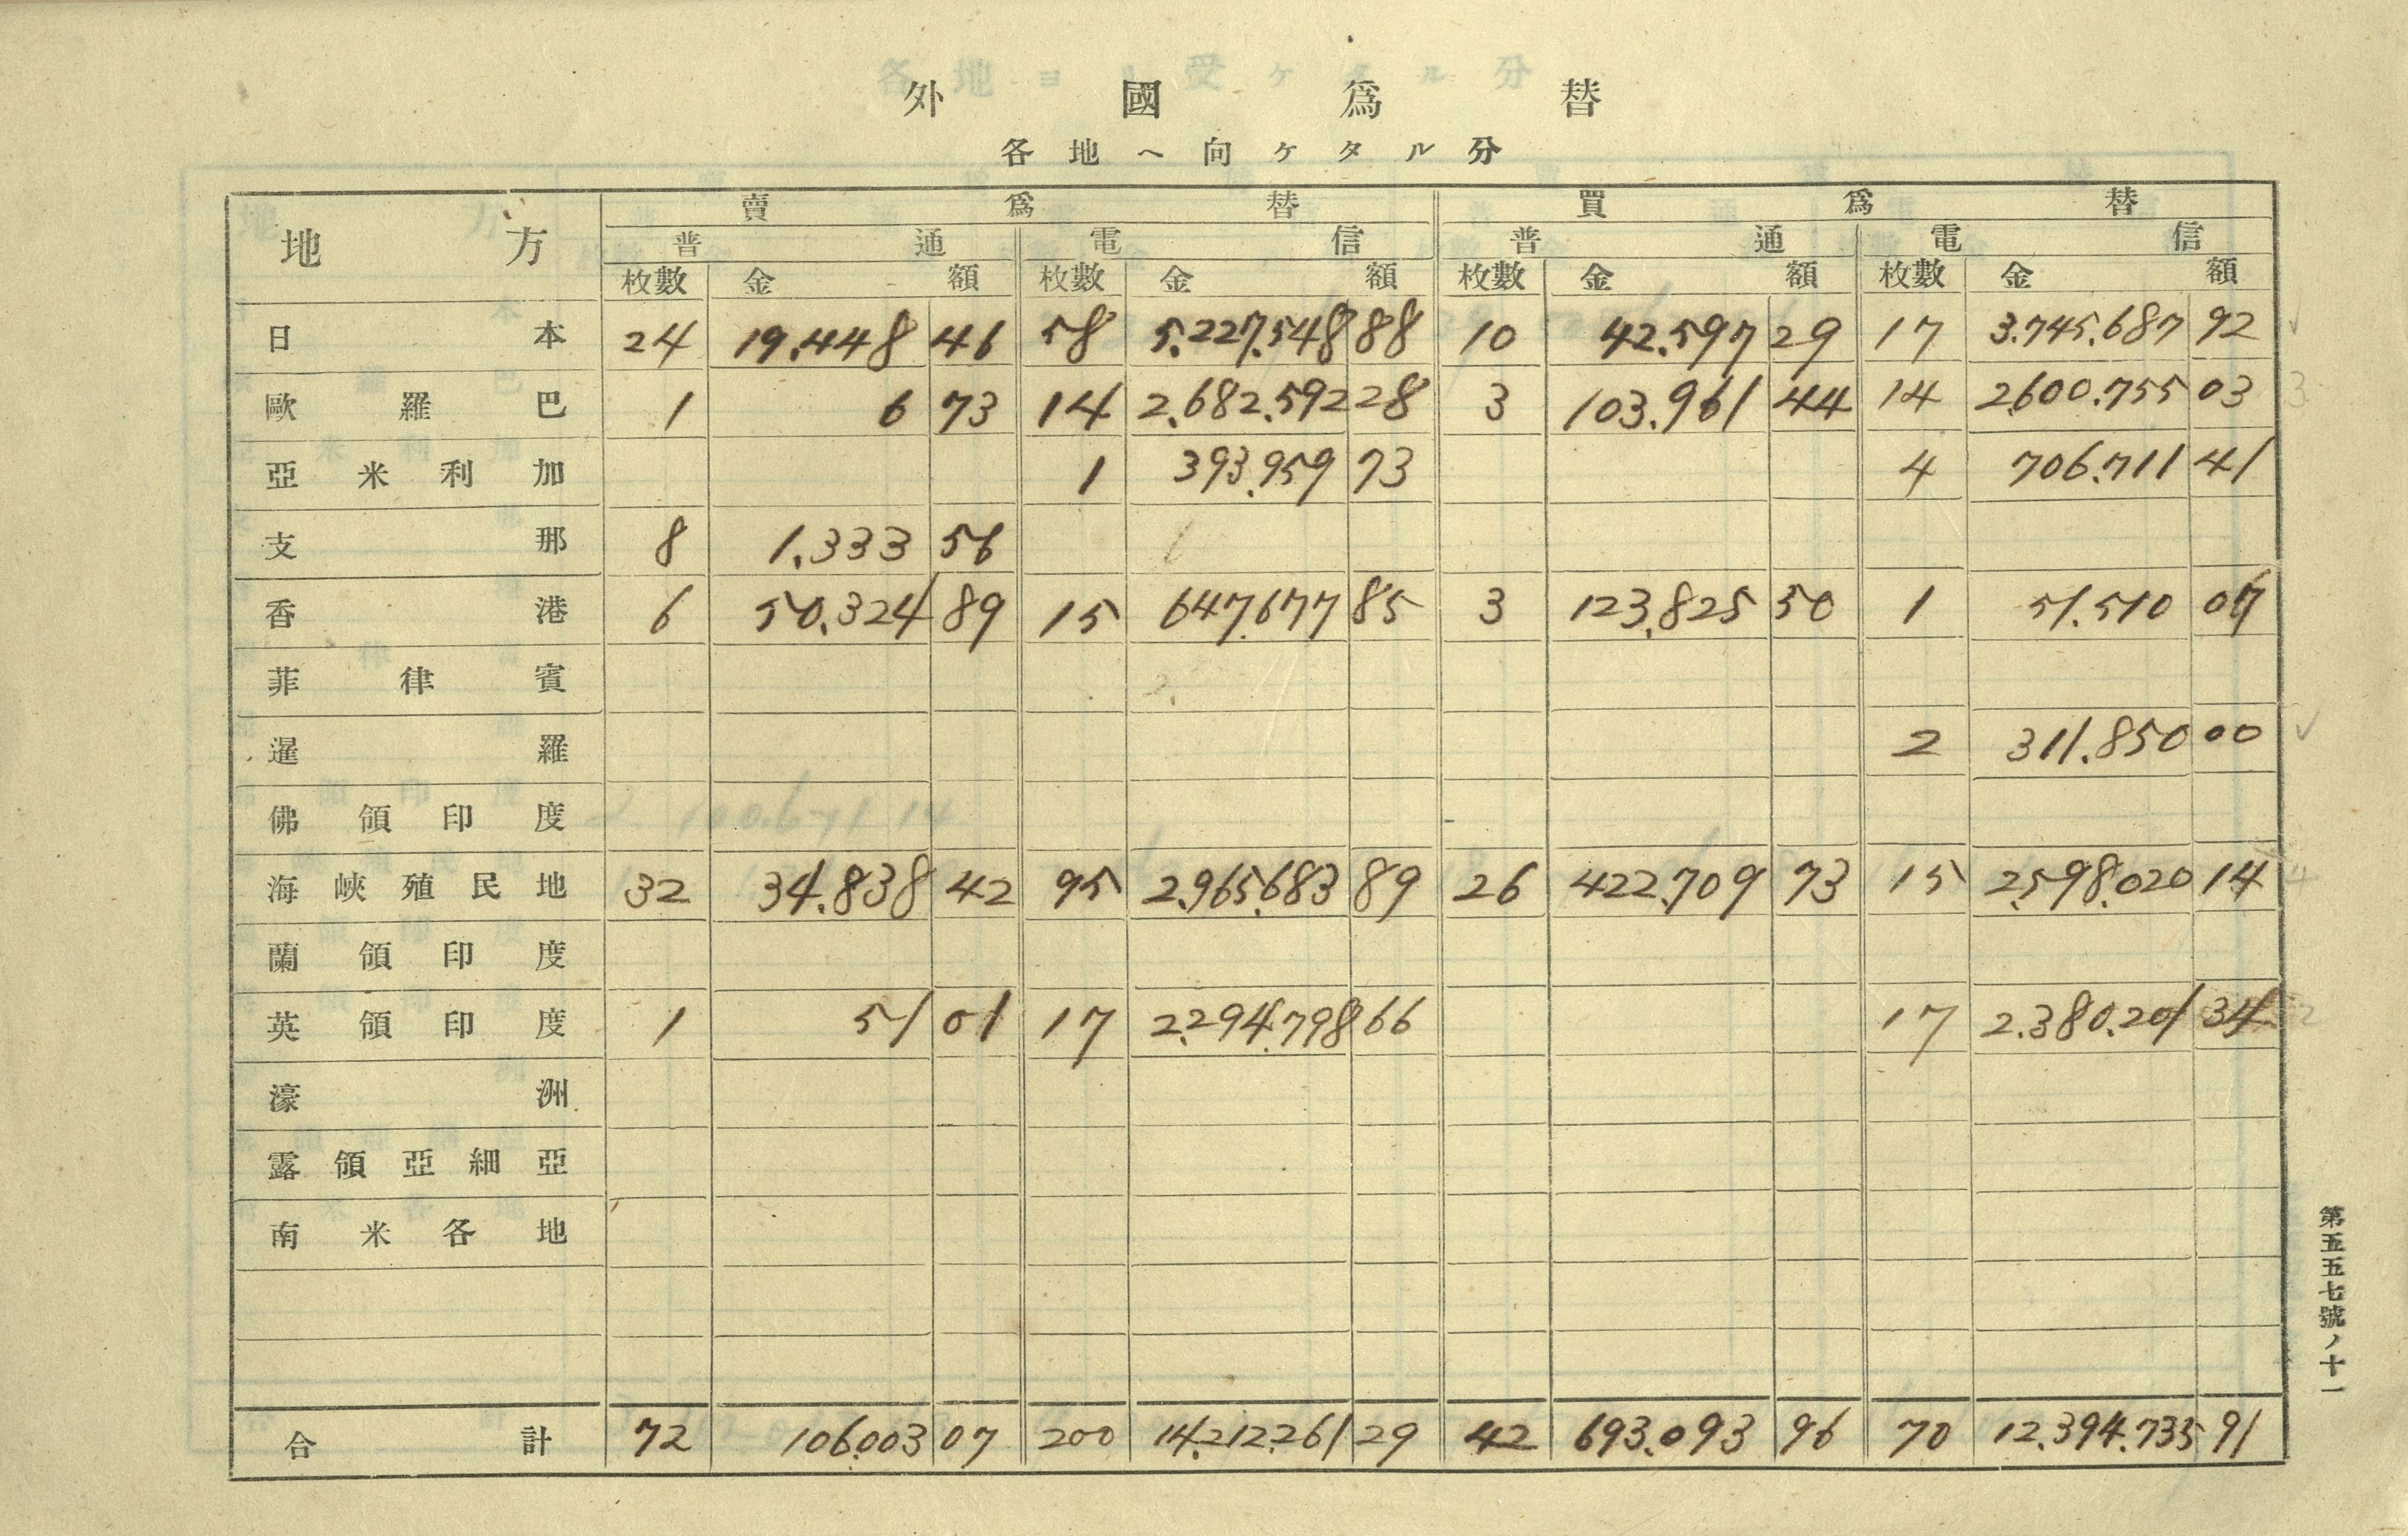 外國爲替
各地ヘ向ケタル分
地方 賣爲替 買爲替
普通 電信 普通 電信
枚數 金額 枚數 金額 枚數 金額 枚數 金額
日本 24 19.448 46 58 5.227.548 88 10 42.597 29 17 3.745.687 92
歐羅巴 1 6 73 14 2.682.592 28 3 103.961 44 14 2.600.755 03
亞米利加 1 393.959 73 4 706.711 41
支那 8 1.333 56
香港 6 50.324 89 15 647.677 85 3 123.825 50 1 51.510 07
菲律賓
暹羅 2 311.850 00
佛領印度
海峽殖民地 32 34.838 42 95 2.965.683 89 26 422.709 73 15 2.598.020 14
蘭領印度
英領印度 1 51 01 17 2.294.798 66 17 2.380.201 34
濠洲
露領亞細亞
南米各地
合計 72 106.003 07 200 14.212.261 29 42 693.093 96 70 12.394.735 91
第五五七號ノ十一